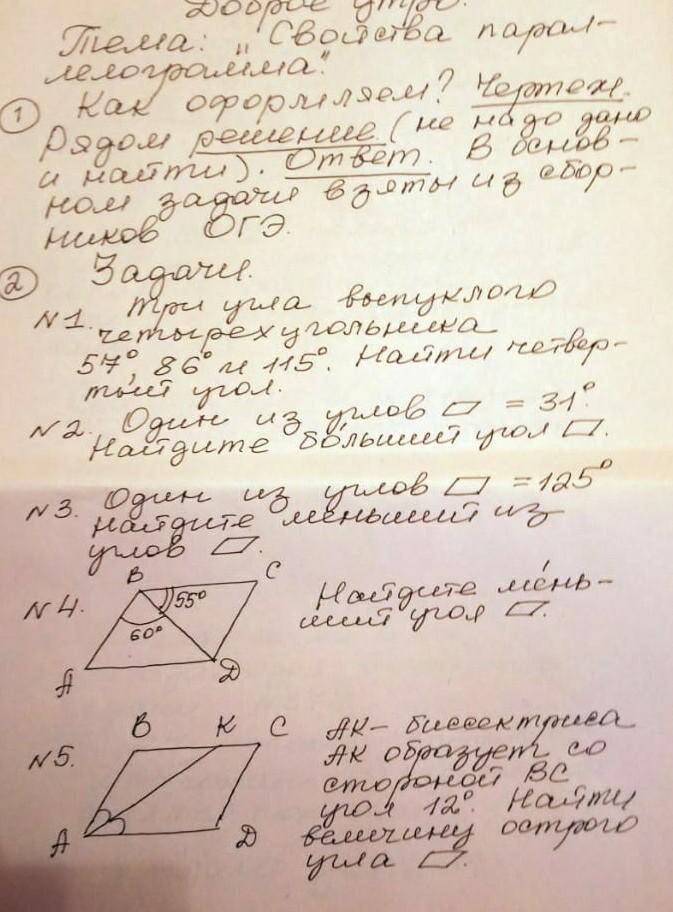 Доброе утро.
Тема: "Свойства парал-
лелограмма".
① Как оформляем? Чертеж.
Рядом решение (не надо дано
и найти). Ответ. В основ-
ном задачи взяты из сбор-
ников ОГЭ.
② Задачи.
№1. Три угла выпуклого
четырехугольника
57°, 86° и 115°. Найти четвер-
тый угол.
№2. Один из углов ▱ = 31°
Найдите бо́льший угол ▱.
№3. Один из углов ▱ = 125°
Найдите меньший из
углов ▱.
№4. B C 55° 60° A D
Найдите ме́нь-
ший угол ▱.
№5. B K C A D
AK - биссектриса
AK образует со
стороной BC
угол 12°. Найти
величину острого
угла ▱.